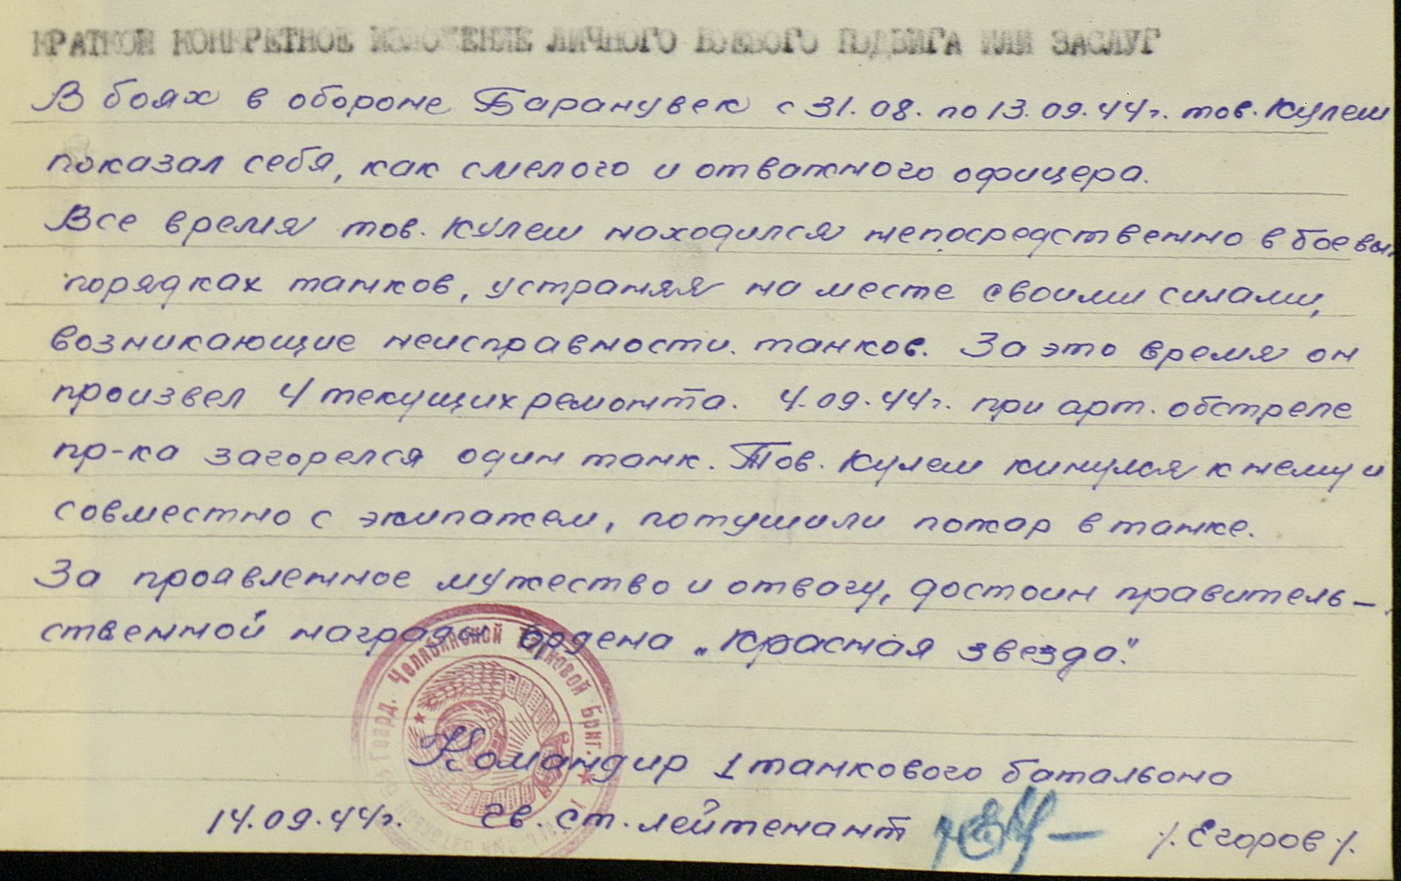 КРАТКОЕ КОНКРЕТНОЕ ИЗЛОЖЕНИЕ ЛИЧНОГО БОЕВОГО ПОДВИГА ИЛИ ЗАСЛУГ
В боях в обороне Баранувек с 31.08. по 13.09.44г. тов. Кулеш
показал себя, как смелого и отважного офицера.
Все время тов. Кулеш находился непосредственно в боевых
порядках танков, устраняя на месте своими силами,
возникающие неисправности танков. За это время он
произвел 4 текущих ремонта. 4.09.44г. при арт. обстреле
пр-ка загорелся один танк. Тов. Кулеш кинулся к нему и
совместно с экипажем, потушили пожар в танке.
За проявленное мужество и отвагу, достоин правитель-
ственной награды ордена „Красная звезда".
Гвард. Челябинской Танковой Бриг.
Командир 1 танкового батальона
14.09.44г. гв. ст. лейтенант /. Егоров /.